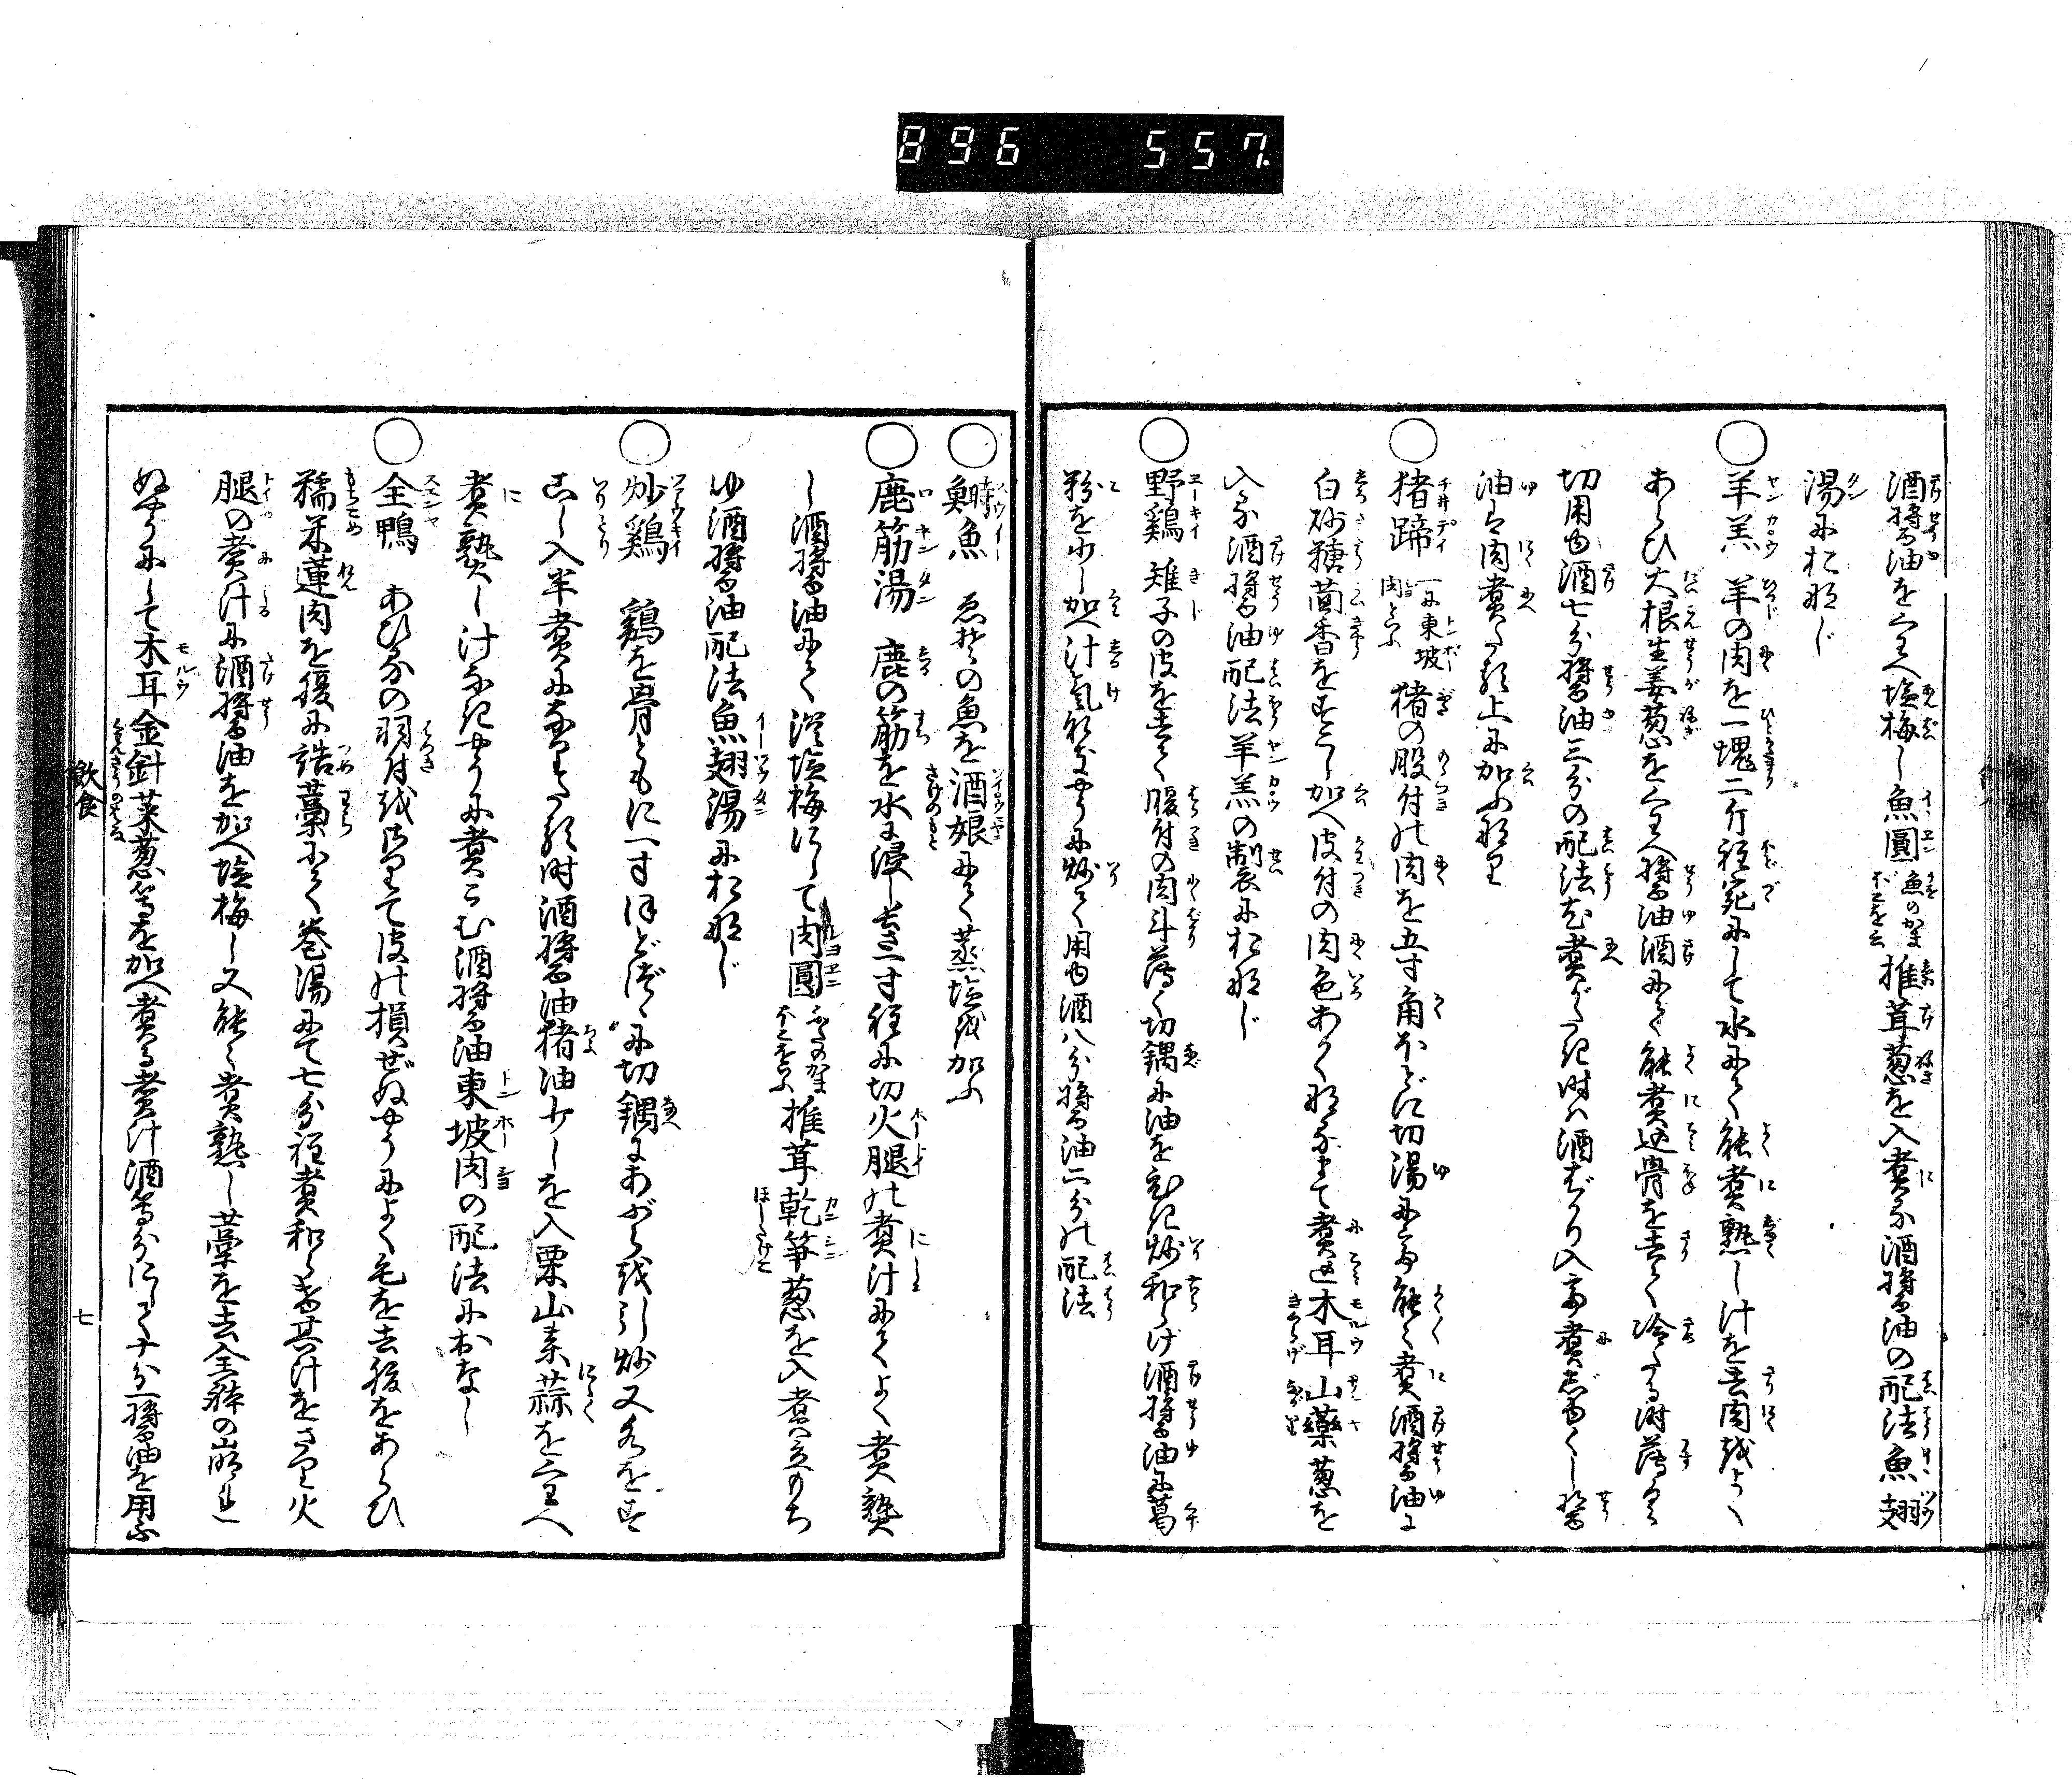 896 557.
酒醬油を加へ塩梅し魚圓魚のかまぼこを云推茸葱を入煮る酒醬油の配法魚翅
湯に相那じ
羊羔 羊の肉を一塊二斤程宛にして水にて能煮熟し汁を去肉をよく
あらひ大根生姜葱を加へ醬油酒にて能煮込骨を去て冷たる時薄く
切用ゆ酒七分醬油三分の配法也煮
猪蹄 一に東坡肉と云 猪の股付の肉を五寸角ほどに切湯にて能く煮酒醬油に
白砂糖茴香を加へ皮付の肉色あかくなるまで煮込木耳山藥葱を
入る酒醬油配法羊羔の製に相那じ
野鷄 雉子の皮を去て腹付の肉斗薄く切鍋に油をひき炒和らげ酒醬油に葛
粉を少し加へ汁気なきやうに炒て用ゆ酒八分醬油二分の配法
鰣魚 の魚を酒娘にて蒸塩を加ふ
鹿筋湯 鹿の筋を水に浸し長さ一寸程に切火腿の煮汁にてよく煮熟
し酒醬油にて淡塩梅にして肉圓 推茸乾笋葱を入煮立のち
ゆ酒醬油配法魚翅湯に相那じ
炒鷄 鷄を骨ともに一寸ほどづゝに切鍋にあぶらを引炒又水を
入半煮になりたる時酒醬油猪油少しを入栗山薬蒜を加へ
煮熟し汁なきやうに煮こむ酒醬油東坡肉の配法におなじ
全鴨 あひるの羽付を て皮の損ぜぬやうによく毛を去腹をあらひ
糯米蓮肉を腹に詰藁にて巻湯にて七分程煮和らぎ其汁をさり火
腿の煮汁に酒醬油を加へ塩梅し又能く煮熟し藁を去全体の崩れ
ぬやうにして木耳金針菜葱等を加へ煮る煮汁酒等分にして十分一醬油を用ふ
飲食
七